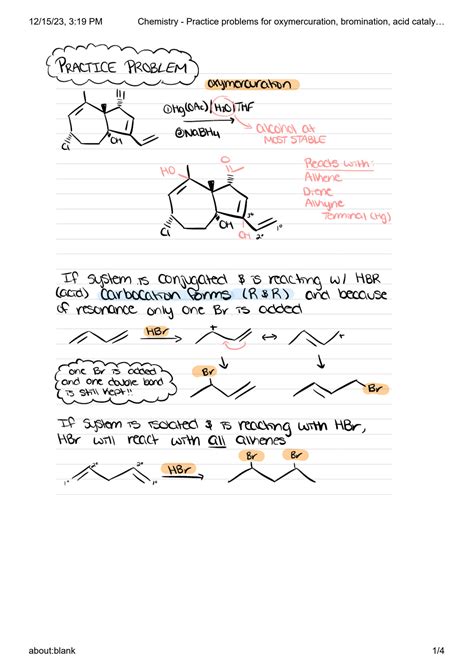 12/15/23, 3:19 PM Chemistry - Practice problems for oxymercuration, bromination, acid cataly…
PRACTICE PROBLEM
oxymercuration
①Hg(OAc)/H2O/THF
②NaBH4
alcohol at
MOST STABLE
Cl
OH
Reacts with:
Alkene
Diene
Alkyne
Terminal (Hg)
HO
O
3°
1°
OH
OH 2°
Cl
If system is conjugated & is reacting w/ HBR
(acid) carbocation forms (R&R) and because
of resonance only one Br is added
HBr
+
+
one Br is added
and one double bond
is still kept!!
Br
Br
If system is isolated & is reacting with HBr,
HBr will react with all alkenes
2° 2°
1° 1°
HBr
Br Br
about:blank 1/4